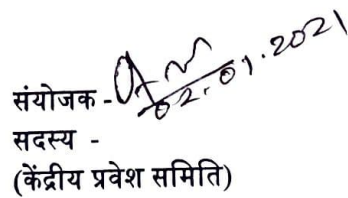 संयोजक - 02.01.2021
सदस्य -
(केंद्रीय प्रवेश समिति)